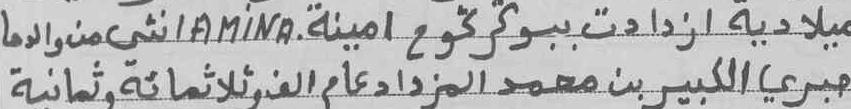 ميلادية ازدادت ببوكركوح امينة. AMINA انثى من والدها
جبري الكبير بن محمد المزداد عام الف وثلاثمائة وثمانية